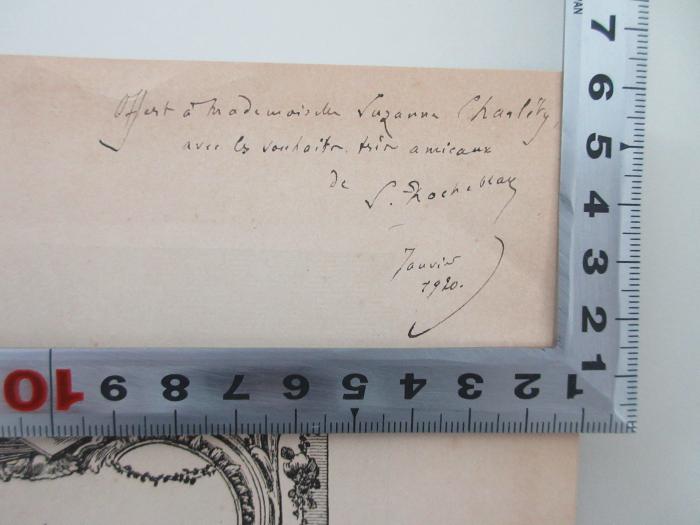 Offert à Mademoiselle Suzanne Charléty,
avec les souhaits très amicaux
de S. Rocheblave
Janvier
1920.
7 6 5 4 3 2 1
10 9 8 7 6 5 4 3 2 1